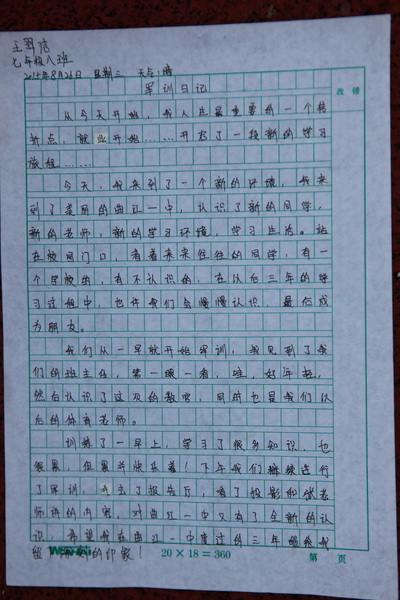 七年级八班
2015年8月26日 星期三 天气:晴
军训日记
改错
从今天开始,我人生最重要的一个转
折点,就此开始……开启了一段新的学习
旅程……
今天,我来到了一个新的环境,我来
到了美丽的曲江一中,认识了新的同学,
新的老师,新的学习环境,学习生活。站
在校园门口,看着来来往往的同学,有一
个学校的,有不认识的,在以后三年的学
习过程中,也许我们会慢慢认识,最后成
为朋友。
我们从一早就开始军训,我见到了我
们的班主任,第一眼一看,哇,好年轻,
然后认识了这次的教官,同时也是我们以
后的体育老师。
训练了一早上,学习了很多知识,也
很累,但累并快乐着!下午我们继续进行
了军训,去了报告厅,看了投影和武老
师讲的内容,对曲江一中又有了全新的认
识,希望我在曲江一中度过的三年能给我
留下深刻的印象!
20×18=360
第 页